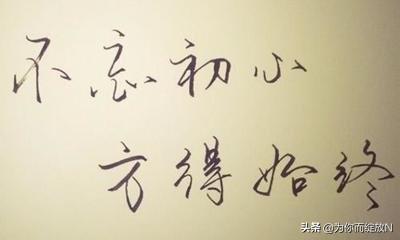 不忘初心
方得始终
头条 @为你而绽放N